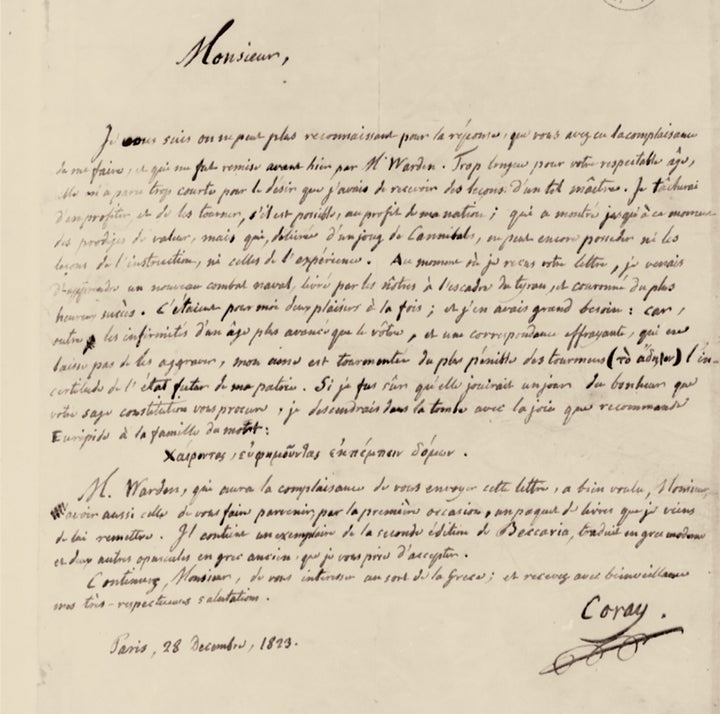 Monsieur,
Je vous suis on ne peut plus reconnaissant pour la réponse, que vous avez eu la complaisance
de me faire, et qui me fut remise avant hier par Mr Warden. Trop longue pour votre respectable âge,
elle m'a paru trop courte pour le désir que j'avais de recevoir des leçons d'un tel maître. Je tâcherai
d'en profiter, et de les tourner, s'il est possible, au profit de ma nation; qui a montré jusqu'à ce moment
des prodiges de valeur, mais qui, délivrée d'un joug de Cannibals, ne peut encore posséder ni les
leçons de l'instruction, ni celles de l'expérience. Au moment où je reçus votre lettre, je venais
d'apprendre un nouveau combat naval, livré par les nôtres à l'escadre du tyran, et couronné du plus
heureux succès. C'étaient pour moi deux plaisirs à la fois; et j'en avais grand besoin: car,
outre les infirmités d'un âge plus avancé que le vôtre, et une correspondance effrayante, qui ne
laisse pas de les aggraver, mon ame est tourmentée du plus pénible des tourmens (τὸ ἄδηλον) l'in-
certitude de l'état futur de ma patrie. Si je fus sûr qu'elle jouirait un jour du bonheur que
votre sage constitution vous procure, je descendrais dans la tombe avec la joie que recommande
Euripide à la famille du mort:
Χαίροντας, εὐφημοῦντας ἐκπέμπειν δόμων.
M. Warden, qui aura la complaisance de vous envoyer cette lettre, a bien voulu, Monsieur,
avoir aussi celle de vous faire parvenir par la première occasion, un paquet de livres que je viens
de lui remettre. Il contient un exemplaire de la seconde édition de Beccaria, traduit en grec moderne
et deux autres opuscules en grec ancien, que je vous prie d'accepter.
Continuez, Monsieur, de vous intéresser au sort de la Grèce; et recevez avec bienveillance
mes très-respectueuses salutations.
Coray.
Paris, 28 Decembre, 1823.